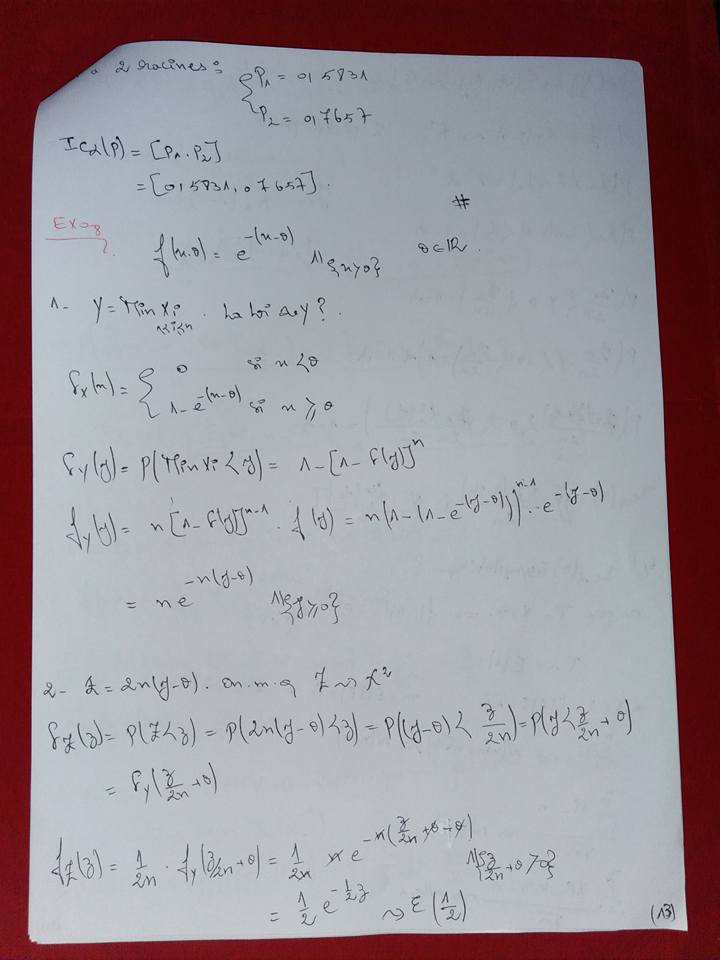 2 racines : { P1 = 0,5831
P2 = 0,7657
ICα(P) = [P1, P2]
= [0,5831, 0,7657].
#
Exo8
f(x,θ) = e^{-(x-θ)} 1{x>θ} θ∈ℝ.
1- Y = Min Xi 1≤i≤n . La loi de Y ?
F_X(x) = { 0 si x<θ
1-e^{-(x-θ)} si x ≥ θ
F_Y(y) = P(Min Xi < y) = 1-[1-F(y)]^n
f_Y(y) = n[1-F(y)]^{n-1} . f(y) = n(1-(1-e^{-(y-θ)}))^{n-1} . e^{-(y-θ)}
= n e^{-n(y-θ)} 1{y≥θ}
2- Z = 2n(y-θ). On m. q Z ⤳ χ²
F_Z(z) = P(Z<z) = P(2n(y-θ)<z) = P((y-θ) < z/2n) = P(y < z/2n + θ)
= F_Y(z/2n + θ)
f_Z(z) = 1/2n . f_Y(z/2n + θ) = 1/2n n e^{-n(z/2n + θ - θ)} 1{z/2n + θ > θ}
= 1/2 e^{-1/2 z} ⤳ ε(1/2)
(13)